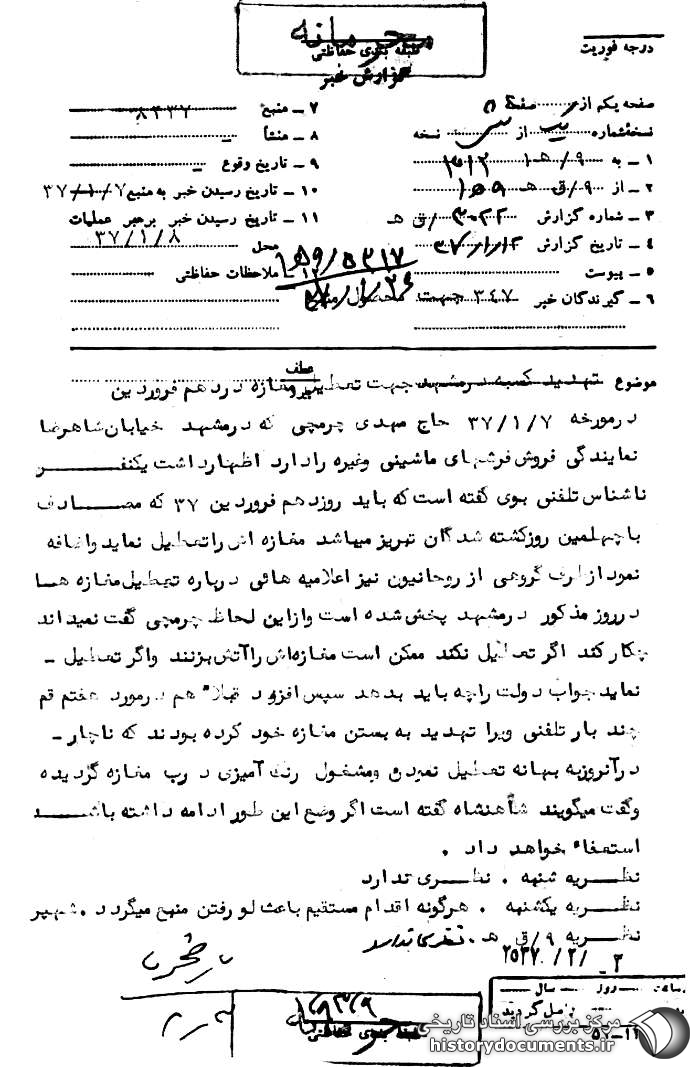 محرمانه
طبقه بندی حفاظتی
گزارش خبر
درجه فوریت
صفحه یکم از صفحه
نسخه شماره از نسخه
۱ ـ به ۹/ه‍ ۱ ۳۱۲
۲ ـ از ۹/ق ه‍
۳ ـ شماره گزارش /ق ه‍
۴ ـ تاریخ گزارش
۵ ـ پیوست
۶ ـ گیرندگان خبر ۳۴۷ جهت
۷ ـ منبع ۸۳۳۷
۸ ـ منشأ
۹ ـ تاریخ وقوع
۱۰ ـ تاریخ رسیدن خبر به منبع ۳۷/۱/۷
۱۱ ـ تاریخ رسیدن خبر برهبر عملیات
محل ۳۷/۱/۸
۱۲ ـ ملاحظات حفاظتی
عطف
پیرو
موضوع تهدید کسبه در مشهد جهت تعطیل مغازه در دهم فروردین
در مورخه ۳۷/۱/۷ حاج مهدی چرمچی که در مشهد خیابان شاهرضا
نمایندگی فروش فرشهای ماشینی وغیره را دارد اظهار داشت یکنفر
ناشناس تلفنی بوی گفته است که باید روز دهم فروردین ۳۷ که مصادف
با چهلمین روز کشته شدگان تبریز میباشد مغازه اش را تعطیل نماید و اضافه
نمود از طرف گروهی از روحانیون نیز اعلامیه هائی درباره تعطیل مغازه ها
در روز مذکور در مشهد پخش شده است و از این لحاظ چرمچی گفت نمیداند
چکار کند اگر تعطیل نکند ممکن است مغازه‌اش را آتش بزنند واگر تعطیل ـ
نماید جواب دولت را چه باید بدهد سپس افزود قبلاً هم در مورد هفتم قم
چند بار تلفنی ویرا تهدید به بستن مغازه خود کرده بودند که ناچار ـ
در آنروز به بهانه تعطیل نموده و مشغول رنگ آمیزی درب مغازه گردیده
وگفت میگویند شاهنشاه گفته است اگر وضع این طور ادامه داشته باشد
استعفاء خواهد داد .
نظریه شنبه . نظری ندارد
نظریه یکشنبه . هرگونه اقدام مستقیم باعث لو رفتن منبع میگردد . شهیر
نظریه ۹/ق ه‍ . نظری ندارد
ساعت روز سال
واصل گردید
طبقه بندی حفاظتی
مرکز بررسی اسناد تاریخی
historydocuments.ir